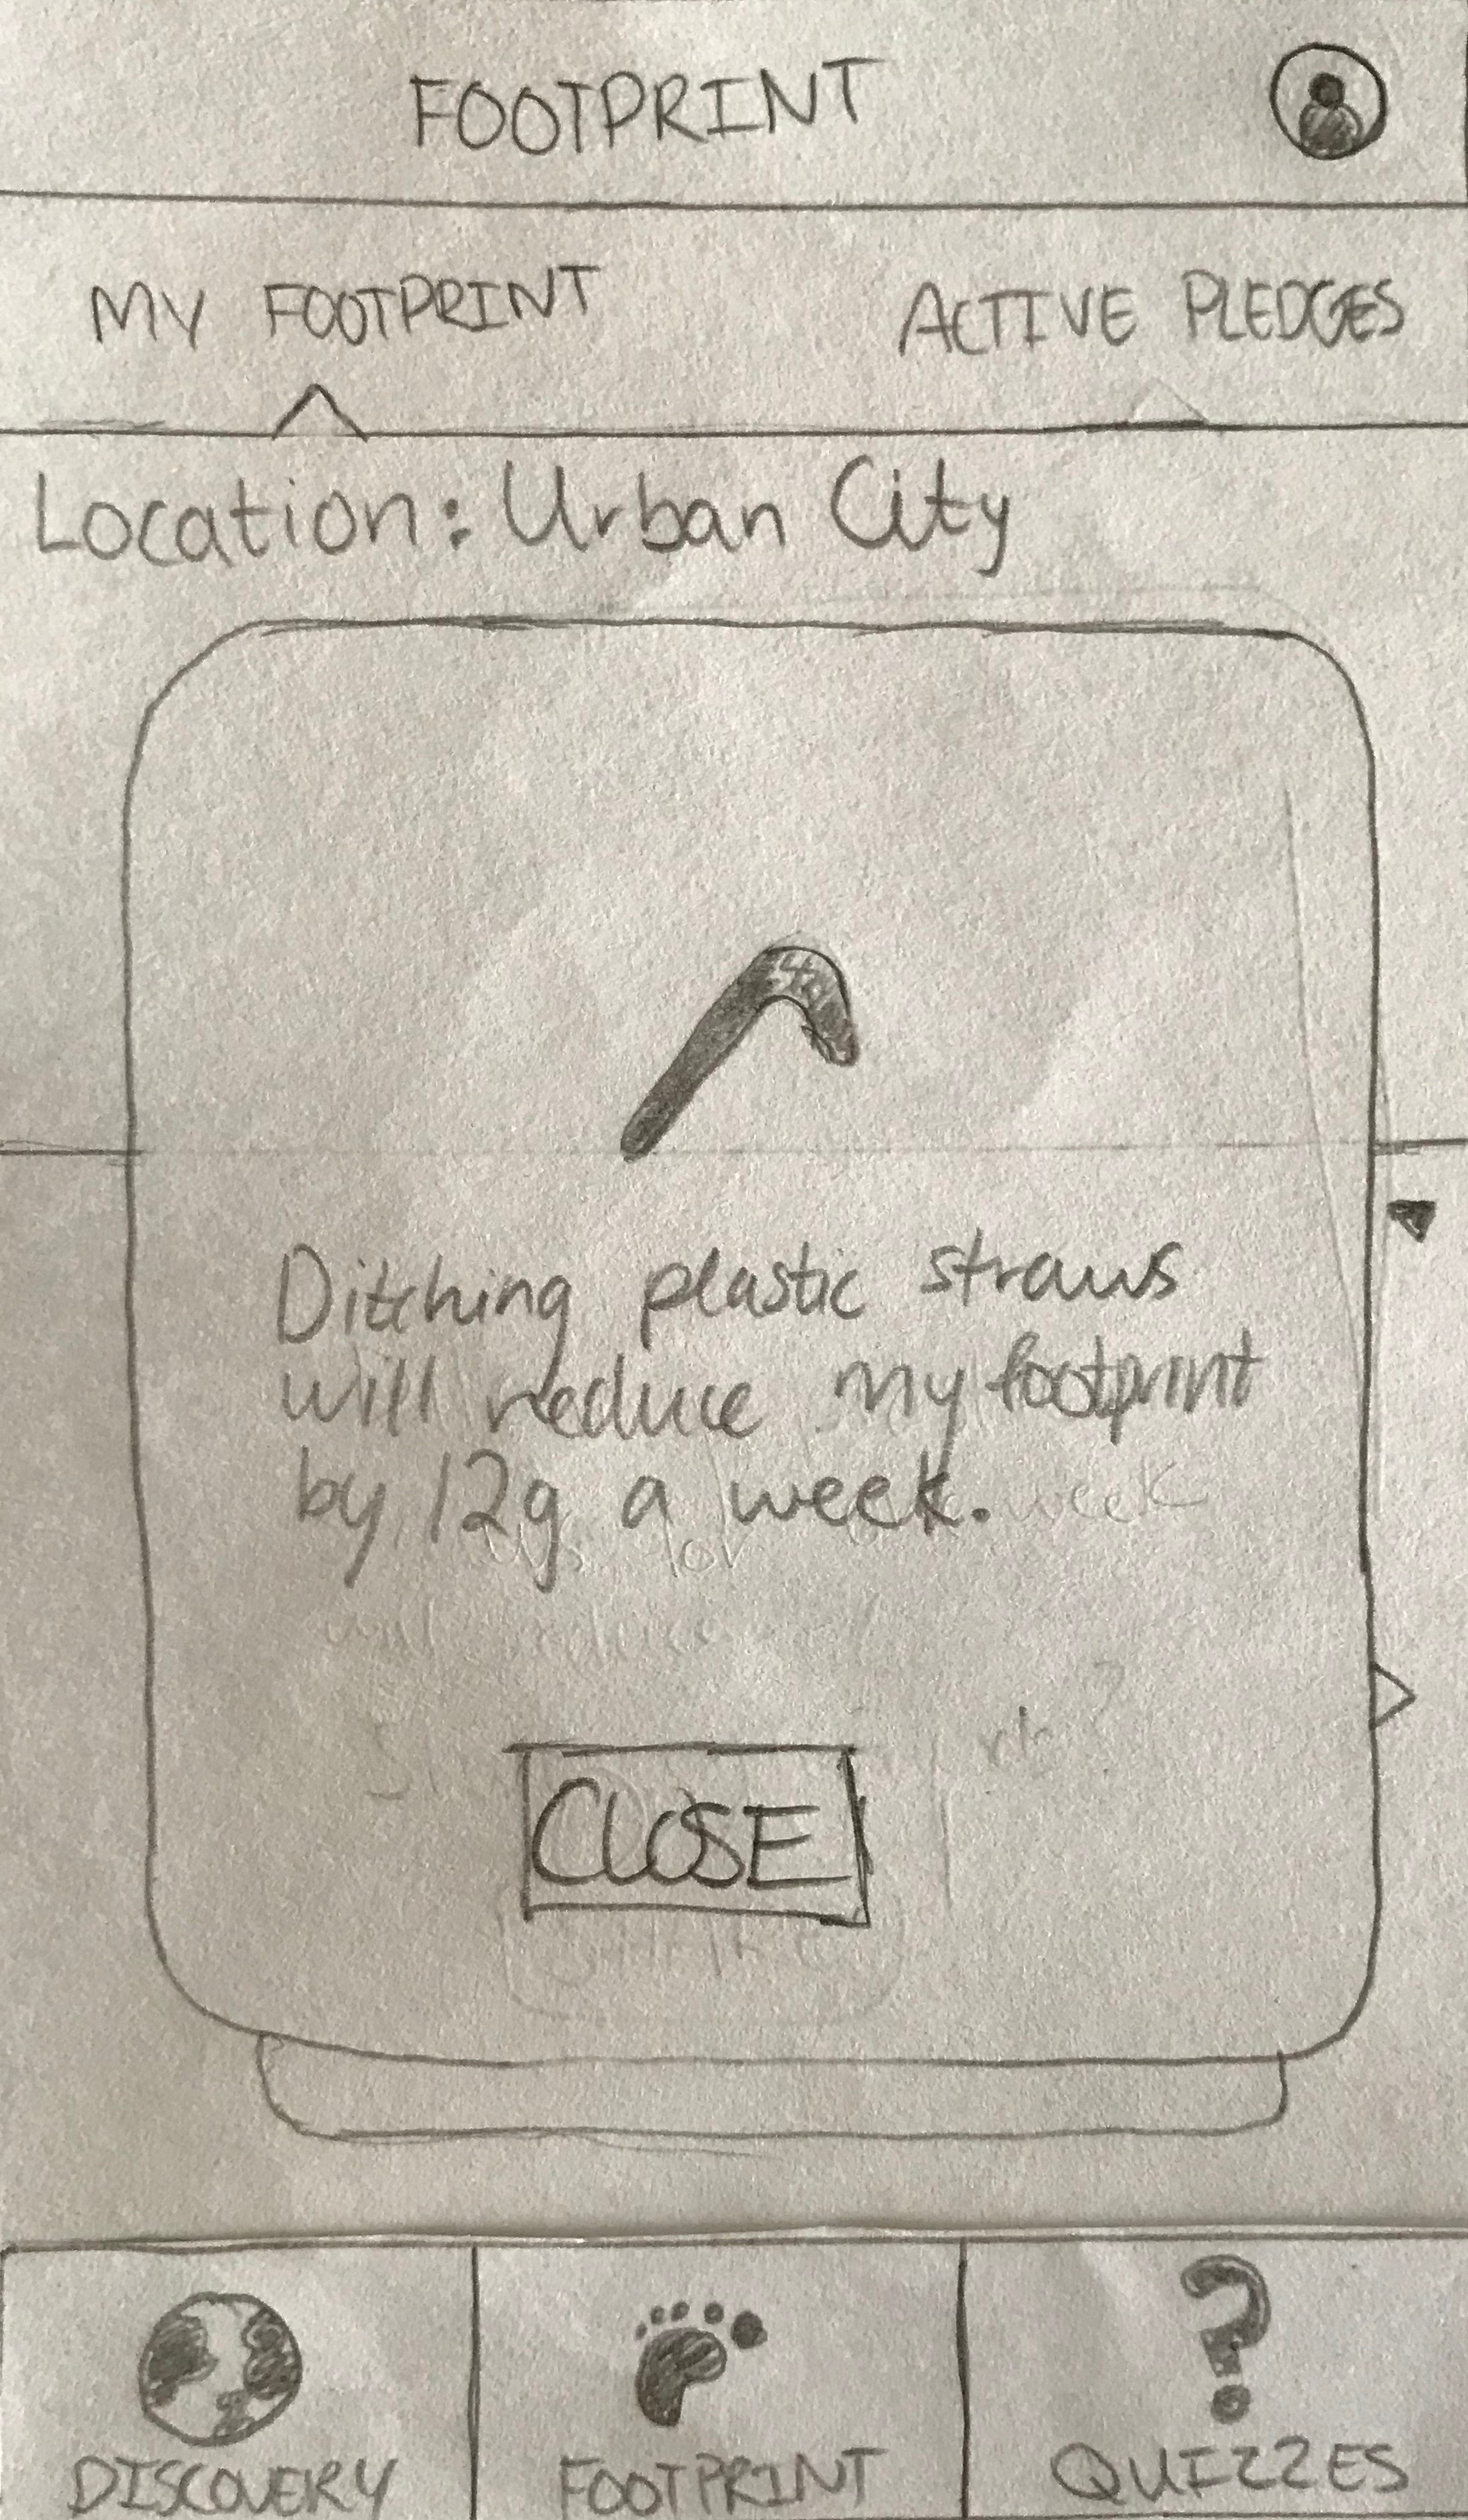 FOOTPRINT
MY FOOTPRINT
ACTIVE PLEDGES
Location: Urban City
Ditching plastic straws
will reduce my footprint
by 12g a week.
week
CLOSE
DISCOVERY
FOOTPRINT
QUIZZES